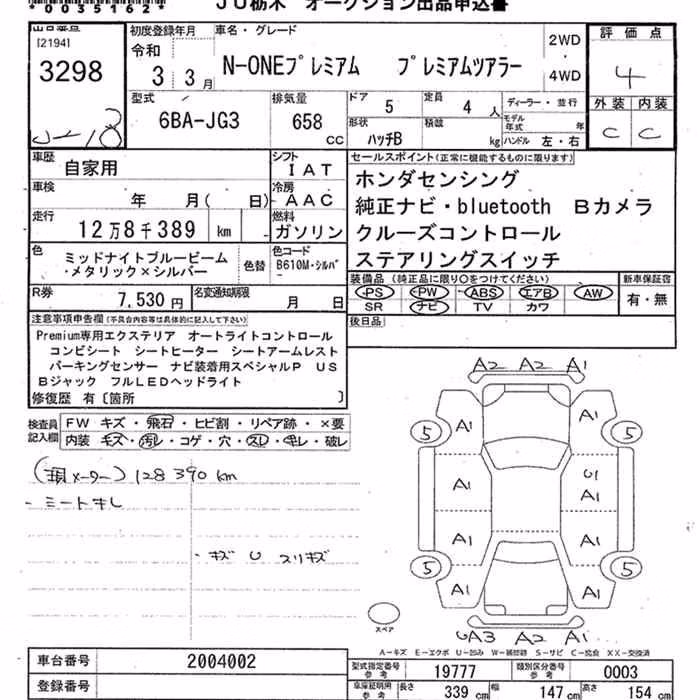 *0035162* JU栃木 オークション出品申込書
出品番号 初度登録年月 車名・グレード 評価点
[2194] 令和 2WD
3298 3 3月 N-ONEプレミアム プレミアムツアラー ・ 4
4WD
型式 排気量 ドア 5 定員 4人 ディーラー・並行 外装 内装
6BA-JG3 658cc 形状 ハッチB 積載 kg モデル年式 年 C C
ハンドル 左・右
車歴 自家用 シフト IAT セールスポイント(正常に機能するものに限ります)
車検 年 月( 日) 冷房 AAC ホンダセンシング
走行 12万8千389 km 燃料 ガソリン 純正ナビ・bluetooth Bカメラ
クルーズコントロール
色 ミッドナイトブルービーム 色替 色コード ステアリングスイッチ
・メタリック×シルバー B610M・シルバ
装備品(純正品に限り○をつけてください) 新車保証書
R券 7,530円 名変通知期限 月 日 PS PW ABS エアB AW 有・無
SR ナビ TV カワ
注意事項申告欄(不具合内容等は具体的に記入して下さい) 後日品
Premium専用エクステリア オートライトコントロール
コンビシート シートヒーター シートアームレスト
パーキングセンサー ナビ装着用スペシャルP US
Bジャック フルLEDヘッドライト
修復歴 有〔箇所 〕
検査員記入欄 FW キズ・飛石・ヒビ割・リペア跡・×要
内装 キズ・汚レ・コゲ・穴・スレ・キレ・破レ
(現メーター) 128390km
- シートキレ
- キズ U スリキズ
A2 A2 A1
A1 A1
5 5
U1
A1 A1
A1 A1
5 5
A1 A1
スペア
UA3 A2 A1
A-キズ E-エクボ U-凹み W-補修跡 S-サビ C-腐食 XX-交換済
車台番号 2004002
型式指定番号 参考 19777 類別区分番号 参考 0003
登録番号
車庫証明用 参考 長さ 339cm 幅 147cm 高さ 154cm